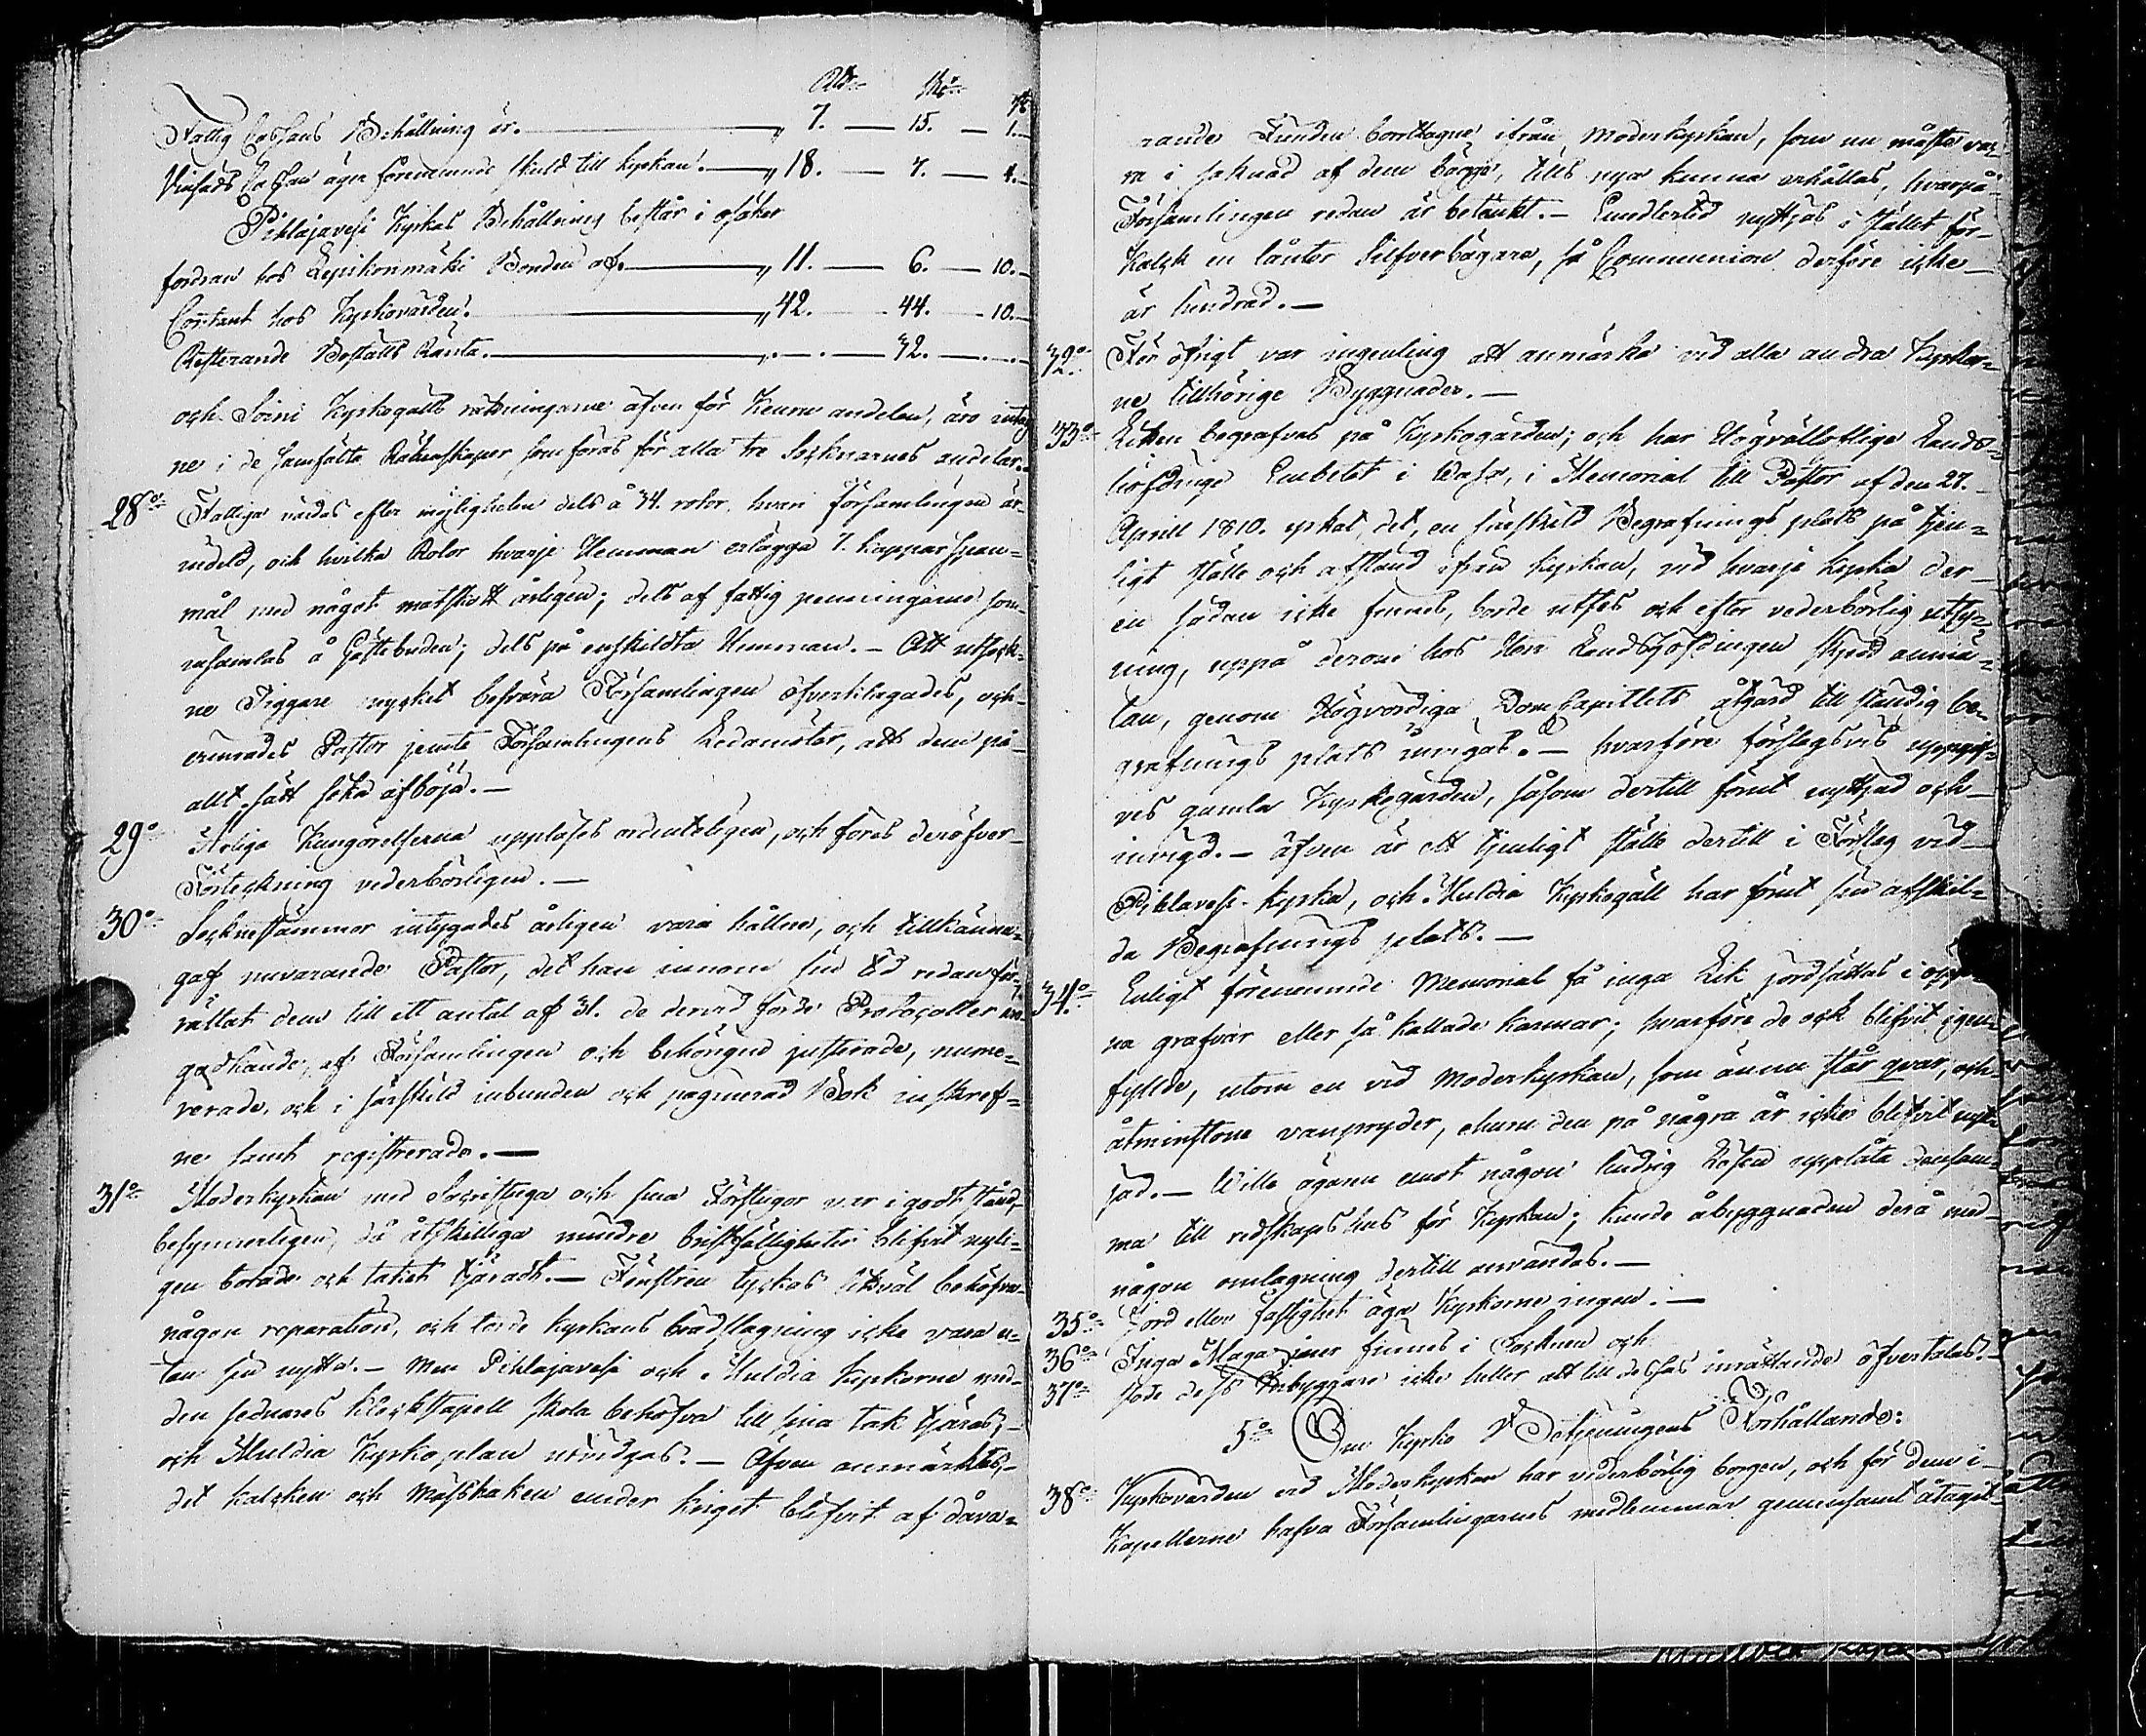 Rdr Sk. r.
Fattig Cassans Behållning är. — „ 7. — 15. — 1.
Vinsäds Cassan äger förenemnde skuld till kyrkan. — „ 18. — 7. — 4.
Pihlajavesi Kyrkas Behållning består i osäker
fordran hos Lepikonmäki Bonden af. — „ 11. — 6. — 10.
Contant hos Kyrkovärden. — „ 42. — 44. — 10.
Resterande Boställs Ränta. — „ . — 32. — .
och Soini Kyrkogälls räkningarne äfven för Keuru andelen, äro intag
ne i de samfälta Räkenskaper som föras för alla tre Socknarnes andelar.
28o Fattiga vårdas efter möjligheten dels å 34. rotor, hvari Församlingen är
indeld, och hvilka Rotor hvarje Hemman erlägga 7. kappar span-
mål med något matskott årligen; dels af fattig penningarne som
insamlas å Gästebuden; dels på enskildta Hemman. — Att utsock-
ne Tiggare mycket besvära Församlingen öfverklagades, och
erinrades Pastor jemte Församlingens Ledamöter, att dem på
allt sätt söka afböja. —
29o Årliga Kungörelserna uppläses ordenteligen, och föres deröfver
Förteckning vederbörligen. —
30o Socknestämmor intygades årligen vara hållne, och tillkänna-
gaf nuvarande Pastor, det han innom sin tid redan för-
rättat dem till ett antal af 31. de dervid förde Protocoller äro
godkände, af Församlingen och behörigen justerade, nume-
rerade, och i särskild inbunden och paginerad Bok inskref-
ne samt registrerade. —
31o Moderkyrkan med Sacristiga och sina Förstugor var i godt stånd,
besynnerligen, då åtskilliga mindre bristfälligheter blifvit nyli-
gen botade och taket tjäradt. — Fönstren tyckas likväl behöfva
någon reparation, och torde kyrkans brädslagning icke vara u-
tan sin nytta. — Men Pihlajavesi och Multia Kyrkorne med
den sednares klockstapell skola behöfva till sina tak tjäras,
och Multia Kyrkoplan utvidgas. — Äfven anmärktes,
det kalcken och mässhaken under kriget blifvit af dåva-
rande Fienden borrttagne ifrån Moderkyrkan, som nu måste va-
ra i saknad af dem begge, tills nya kunna erhållas, hvarpå
Församlingen redan är betänkt. — Emedlertid nyttjas i stället för
kalck en lånter Silfverbägare, så Communion derföre icke
är hindrad. —
32o För öfrigt var ingenting att anmärka vid alla andra Kyrkor-
ne tillhörige Byggnader. —
33o Liken begrafvas på Kyrkogården; och har Högvällofliga Lands-
höfdinge Embetet i Wasa, i Memorial till Pastor af den 27.
Aprill 1810. yrkat, det, en särskild Begrafnings plats på tjen-
ligt ställe och afstånd ifrån kyrkan, vid hvarje kyrka der
en sådan icke finnes, borde utses och efter vederbörlig utsy-
ning, uppå derom hos Herr Landshöfdingen skjed anmä-
lan, genom Högvördiga Dom Capitlets åtgärd till ständig be-
grafnings plats invigas. — hvarföre förslagsvis uppgif-
ves gamla Kyrkogården, såsom dertill förut nyttjad och
invigd. — äfven är ett tjenligt ställe dertill i Förslag vid
Pihlavesi kyrka, och Multia Kyrkogäll har förut sin afskil-
da Begrafnings plats. —
34o Enligt förenemnde Memorial få inga Lik jordsättas i öpp-
na grafvar eller så kallade kamrar; hvarföre de ock blifvit igen-
fyllde, utom en vid Moderkyrkan, som ännu står qvar, och
åtminstone vanpryder, ehuru den på några år icke blifvit nytt-
jad. — Wille ägaren emot någon lindrig Lösen upplåta densam-
ma till redskaps hus för Kyrkan; kunde åbyggnaden derå med
någon omlagning dertill användas. —
35o Jord eller fastighet äga Kyrkorne ingen. —
36o Inga Magaziner finnes i Socknen och
37o stode dess Inbyggare icke heller att till dessas inrättande öfvertalas.
5o Om Kyrko Betjeningens Förhållande:
38o Kyrkovärden vid Moderkyrkan har vederbörlig borgen, och för dem i
Kapellerne hafva Församlingarnes medlemmar gemensamt åtagit